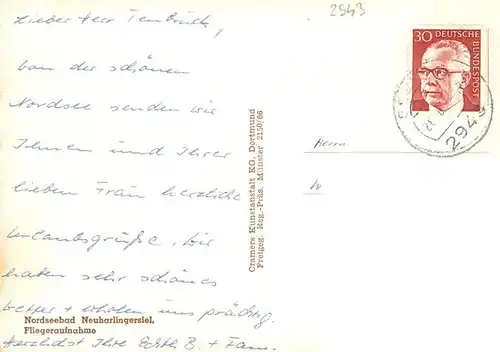 Lieber Herr Tenbrück,
von der schönen
Nordsee senden wir
Ihnen und Ihrer
lieben Frau herzliche
Urlaubsgrüße. Wir
haben sehr schönes
Wetter + erholen uns prächtig.
Herzlichst Ihre Edith B. + Fam.
Nordseebad Neuharlingersiel,
Fliegeraufnahme
Cramers Kunstanstalt KG, Dortmund
Freigeg. Reg.-Präs. Münster 2150/66
2943
30 DEUTSCHE
BUNDESPOST
2943
Herrn